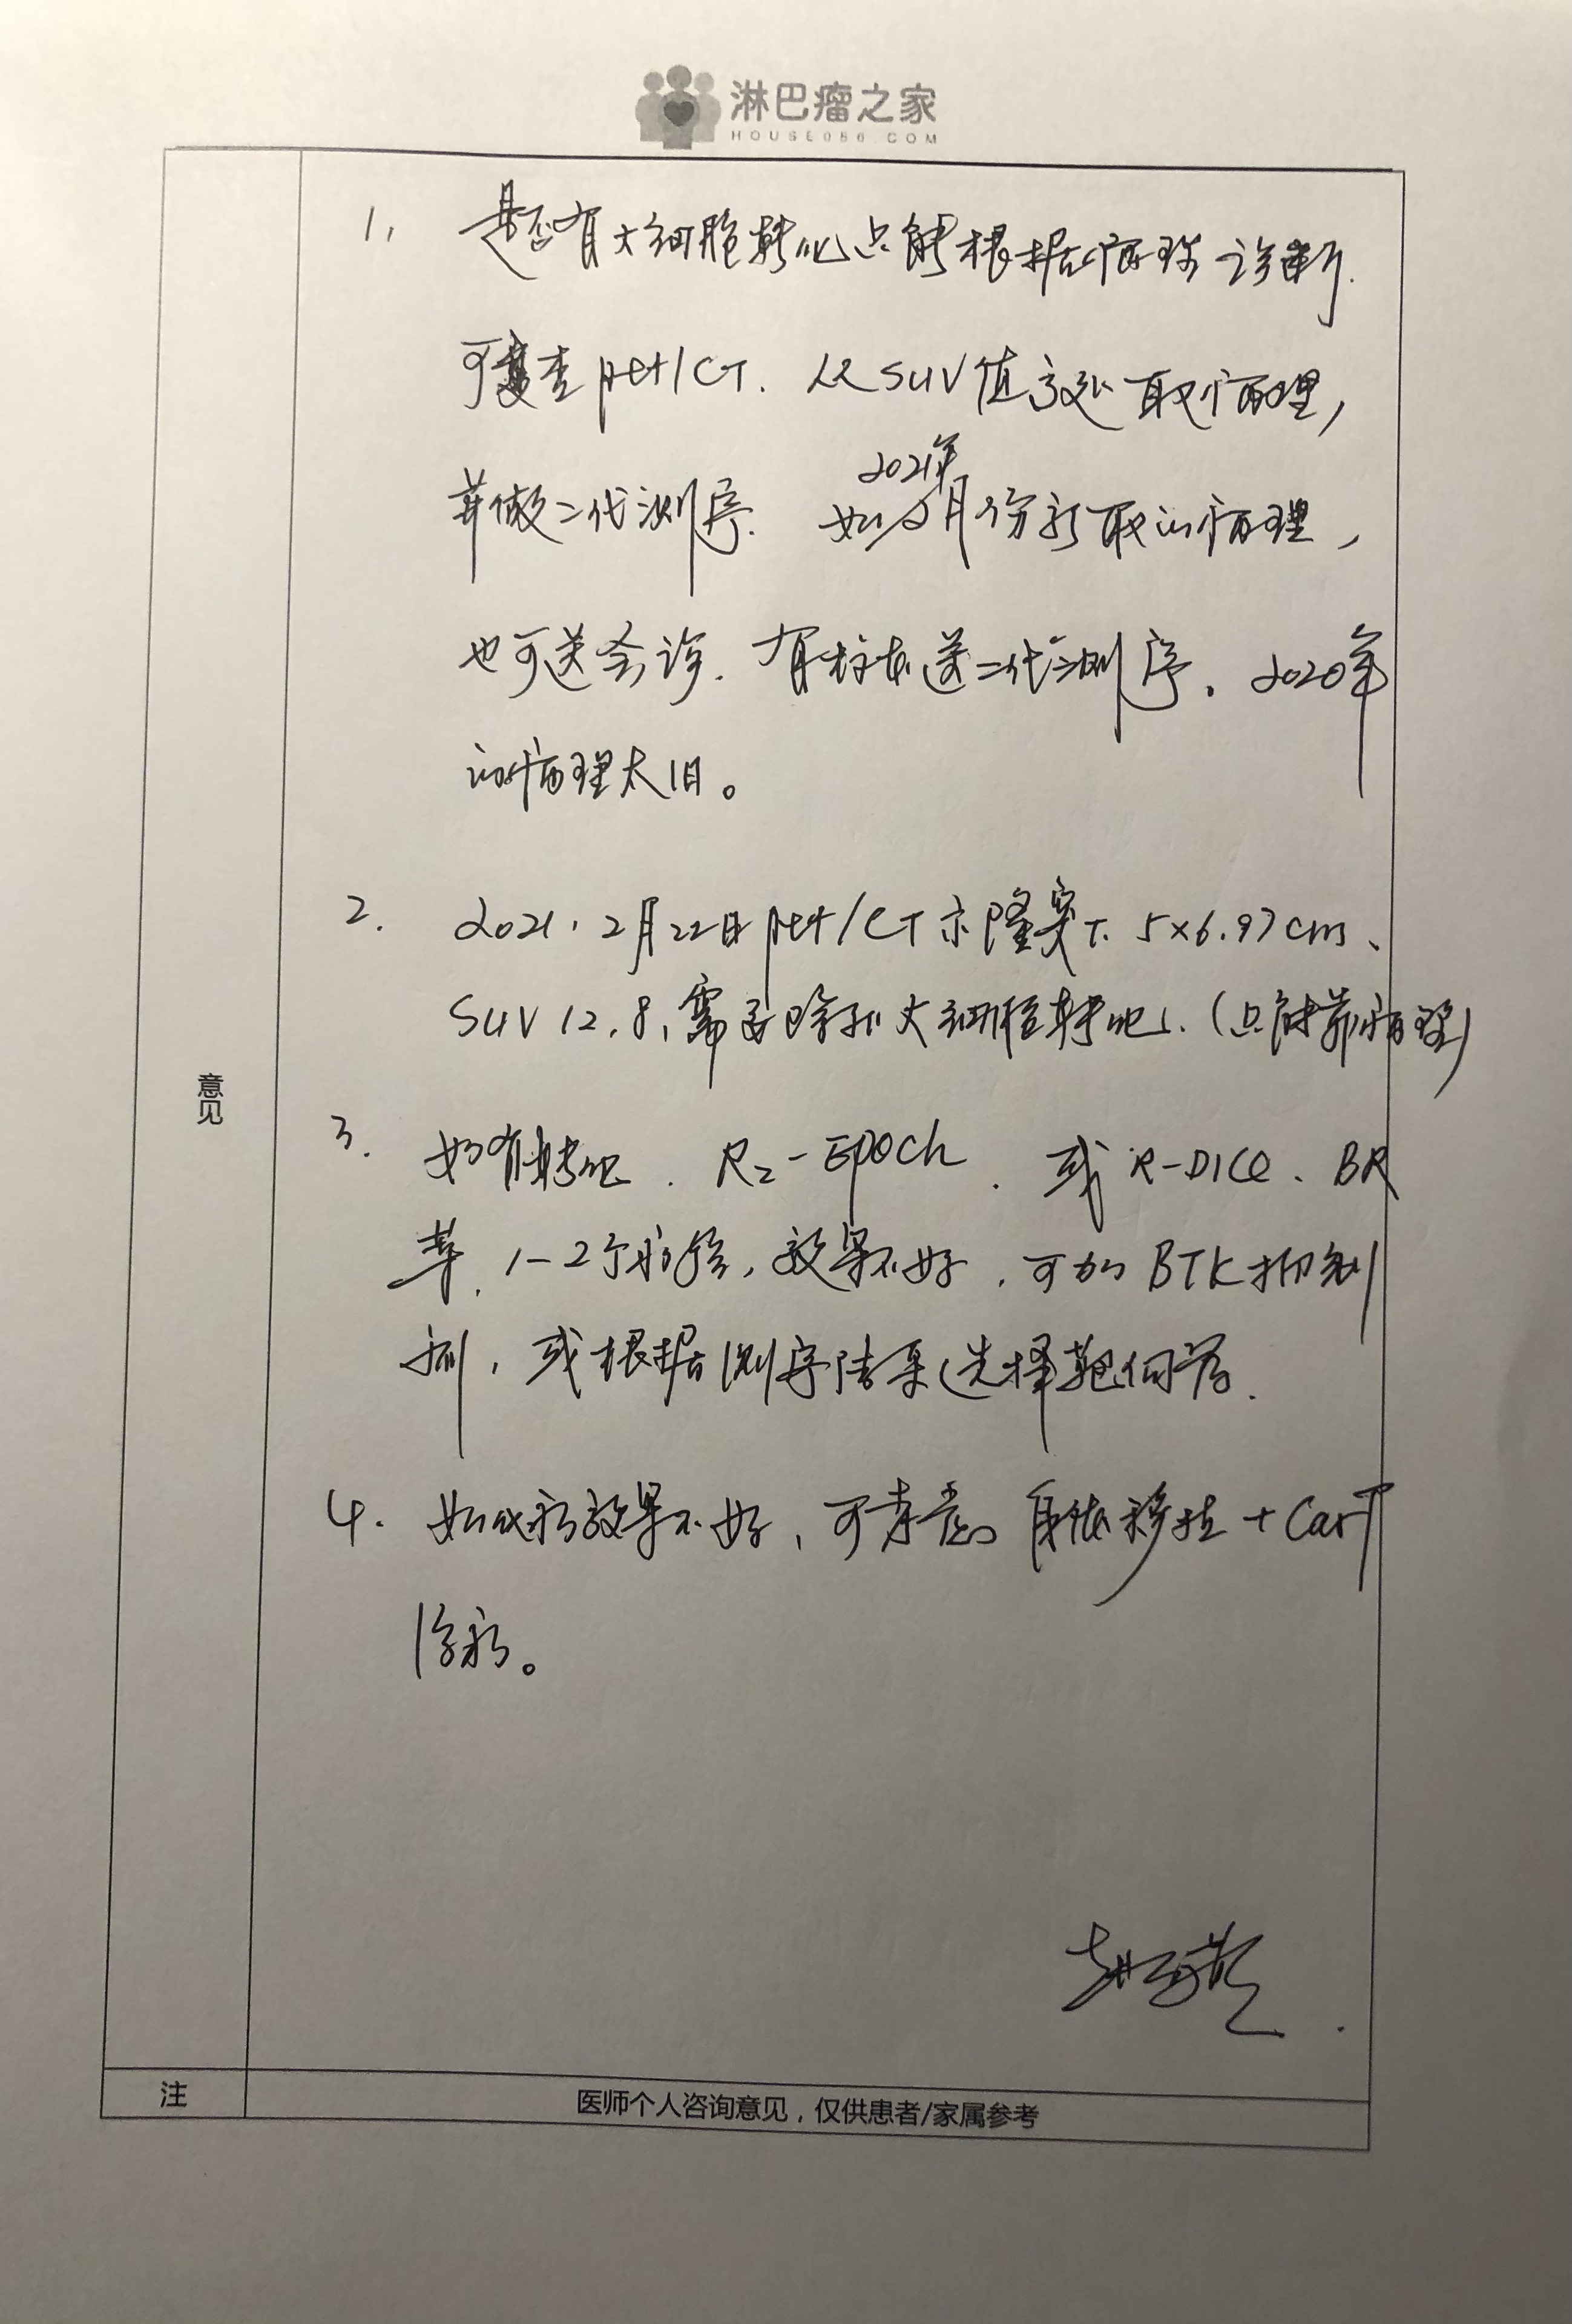 淋巴瘤之家
HOUSE086.COM
1. 是否有大细胞转化只能根据病理诊断.
可复查pet/CT. 从SUV值高处取病理,
并做二代测序. 如2021年2月份新取的病理,
也可送会诊. 有标本送二代测序。2020年
的病理太旧。
2. 2021.2月22日pet/CT示隆突下5×6.97cm、
SUV 12.8, 需要除外大细胞转化. (只能靠病理)
意见
3. 如有转化. R2-EPOCh. 或R-DICE、BR
等. 1-2个疗程, 效果不好, 可加BTK抑制
剂, 或根据测序结果选择靶向药.
4. 如化疗效果不好, 可考虑自体移植+CarT
治疗。
注
医师个人咨询意见，仅供患者/家属参考